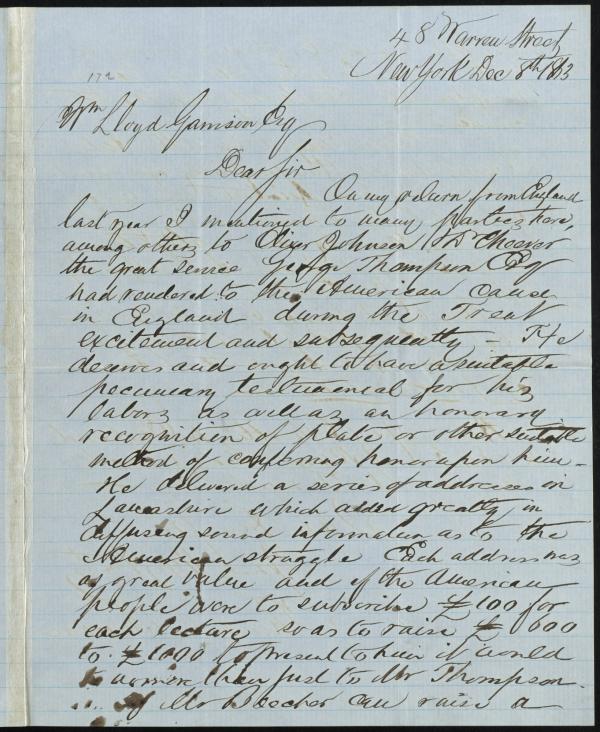 48 Warren Street
New York Dec 8th 1863
172
Wm Lloyd Garrison Esq
Dear Sir
On my return from England
last year I mentioned to many parties here,
among others to Oliver Johnson Dr Cheever
the great service George Thompson Esq
had rendered to the American cause
in England during the Trent
excitement and subsequently – He
deserves and ought to have a suitable
pecuniary testimonial for his
labors as well as an honorary
recognition of plate or other suitable
method of conferring honor upon him –
He delivered a series of addresses in
Lancashire which aided greatly in
diffusing sound information as to the
American struggle Each address was
of great value and if the American
people were to subscribe £100 for
each lecture so as to raise £ 600
to £1000 to present to him it would
be no more than just to Mr Thompson –
If Mr Beecher can raise a